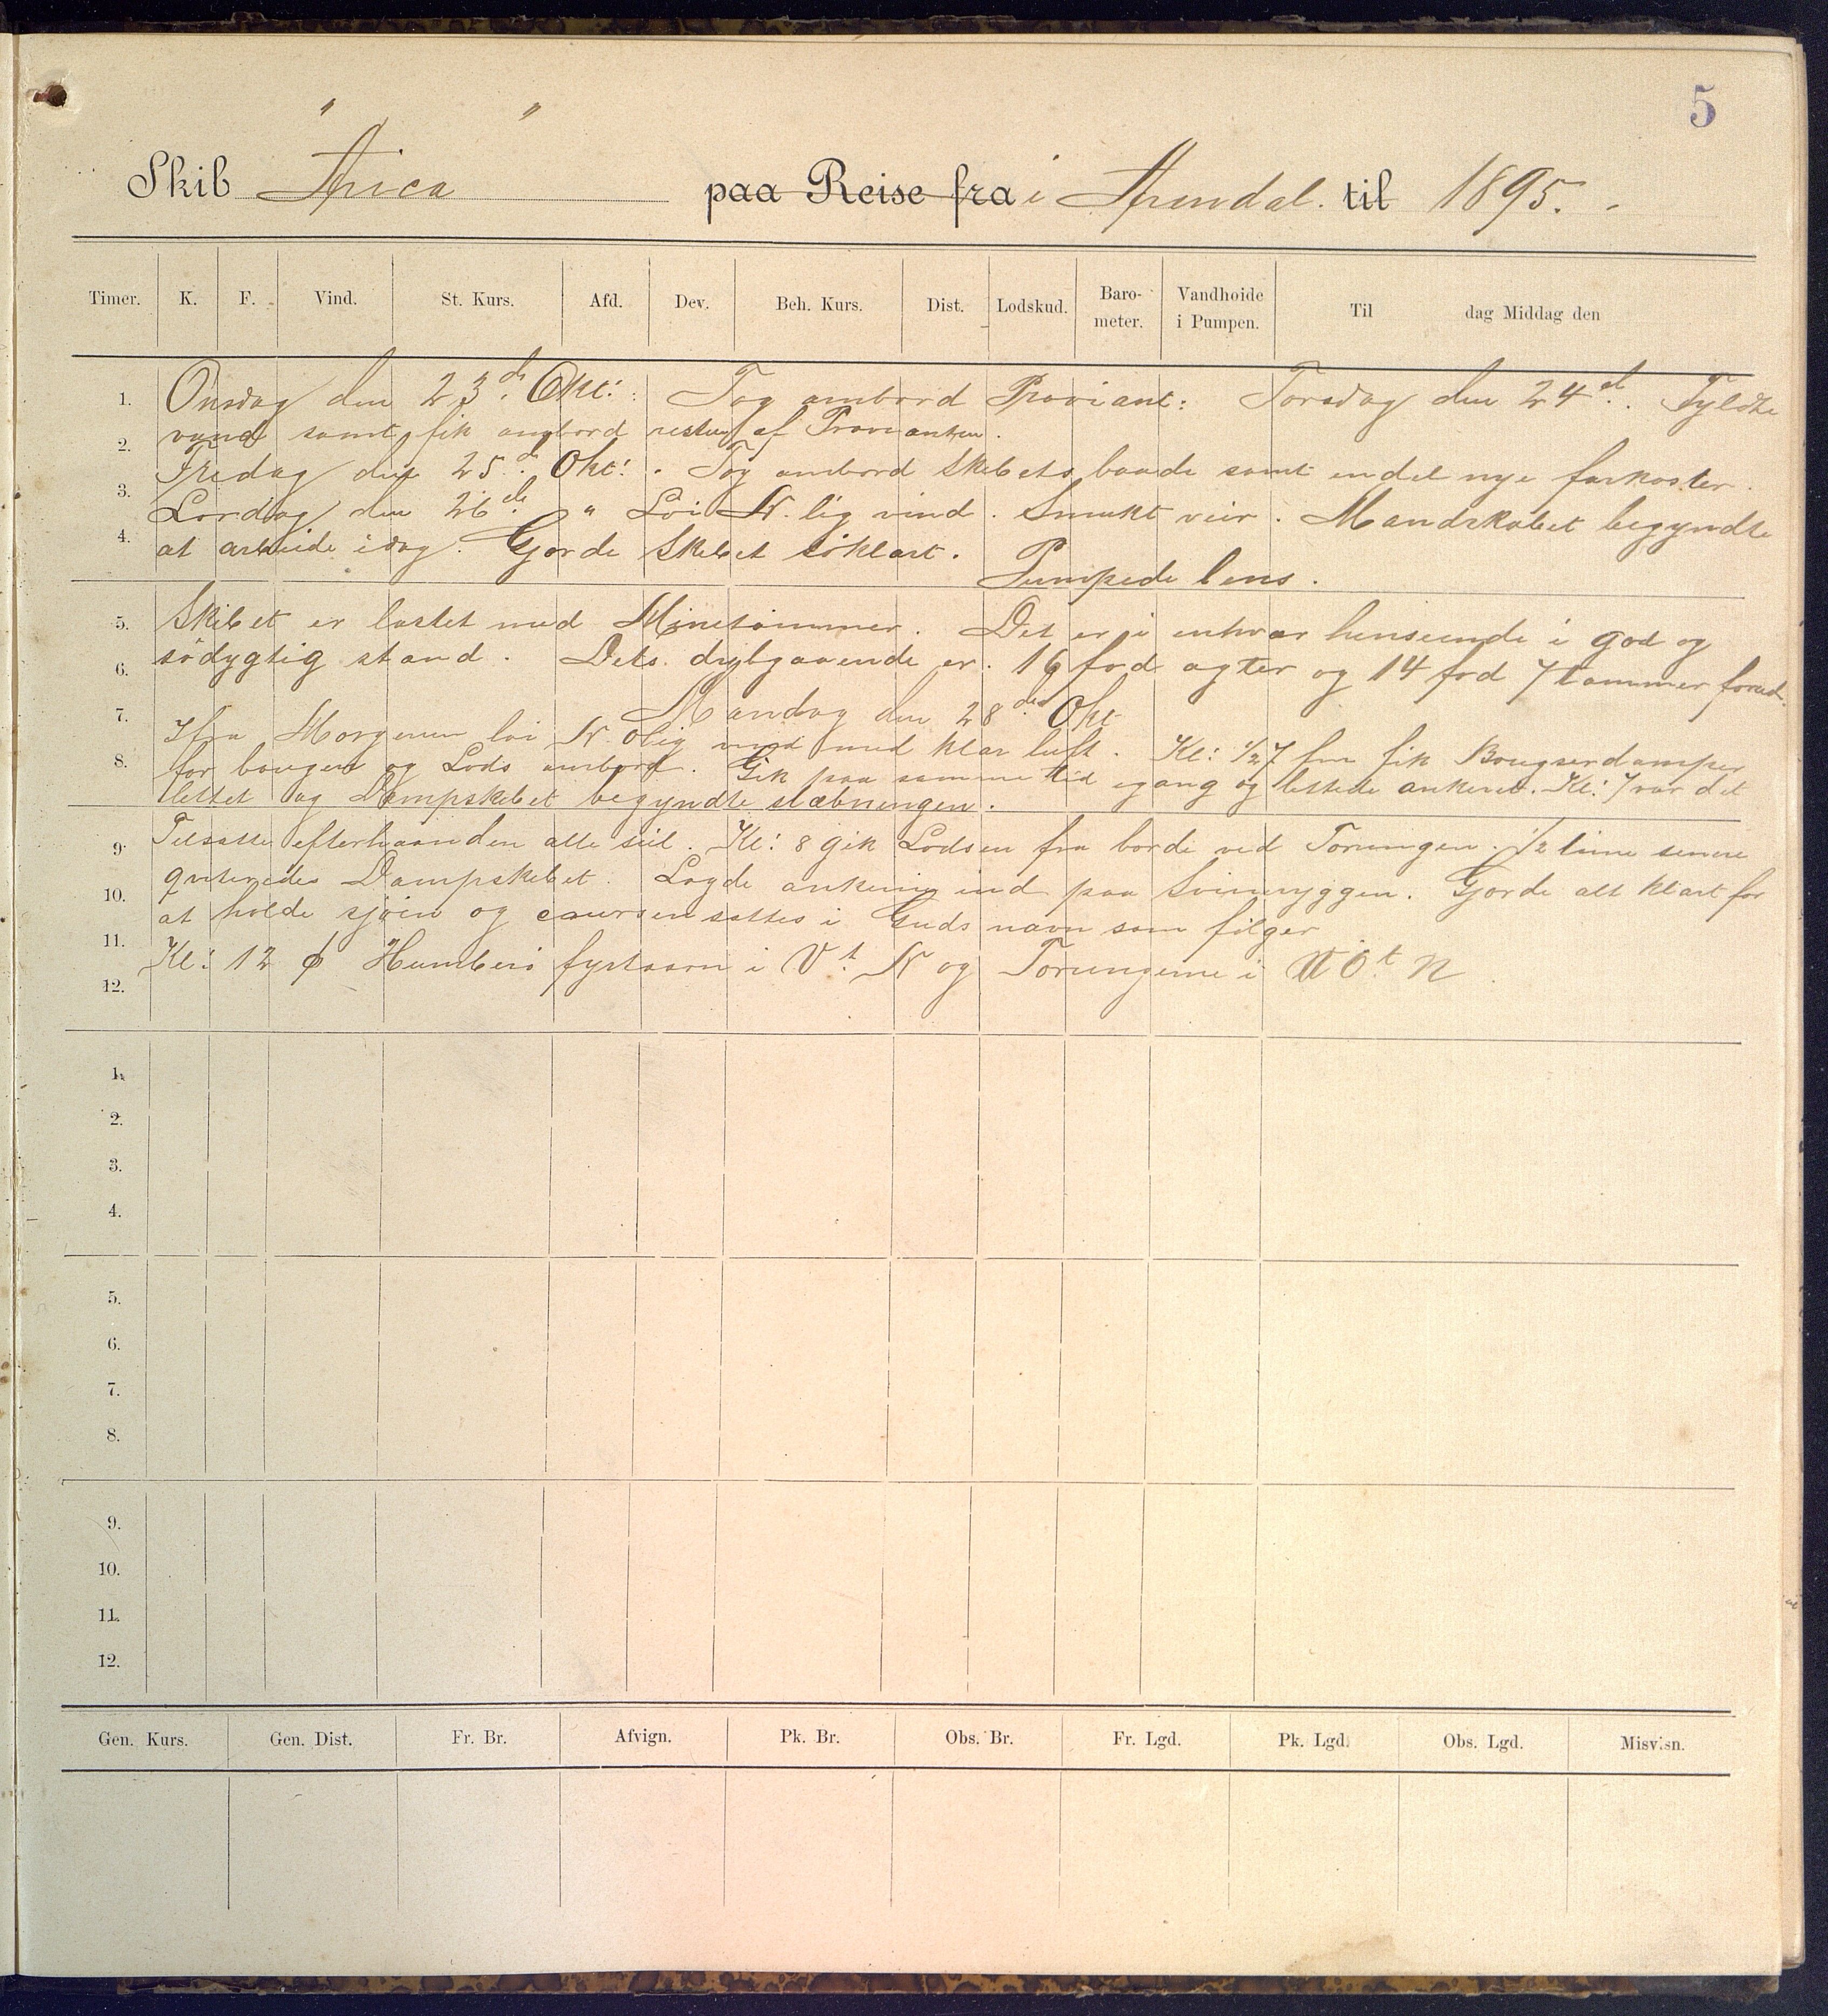 5
Skib "Arica" paa Reise fra i Arendal. til 1895. -
Timer. K. F. Vind. St. Kurs. Afd. Dev. Beh. Kurs. Dist. Lodskud. Baro-meter. Vandhoide i Pumpen. Til dag Middag den
1. Onsdag den 23d Okt: Tog ombord Proviant: Torsdag den 24d. Fyldte
2. vand samt fik ombord resten af Provianten.
Fredag den 25d Okt: . Tog ombord Skibets baade samt endel nye farkoster.
3. Lordag den 26de " Löi N.lig vind. Smukt veir. Mandskabet begyndte
4. at arbeide idag. Gjorde Skibet söklart.
Pumpede lens.
5. Skibet er lastet med Minetömmer. Det er i enhver henseende i god og
6. södygtig stand. Dets dybgaaende er. 16 fod agter og 14 fod 7 tommer forud.
7. Mandag den 28de Okt
Ifra Morgenen löi N.Olig vind med klar luft. Kl: 1/2 7 fm fik Bougserdamper
8. for bougen og Lods ombord. Gik paa samme tid igang og lettede ankeret. Kl: 7 var det
lettet og Dampskibet begyndte slæbningen.
9. Tilsatte efterhaanden alle seil. Kl: 8 gik Lodsen fra borde ved Torungen. 1/2 time senere
10. qviterede Dampskibet. Lagde ankerne ind paa Svineryggen. Gjorde alt klart for
at holde sjöen og coursen sattes i Guds navn som fölger
11. Kl: 12 φ Homborö fyrtaarn i Vt N og Torungerne i NOt N
12.
1.
2.
3.
4.
5.
6.
7.
8.
9.
10.
11.
12.
Gen. Kurs. Gen. Dist. Fr. Br. Afvign. Pk. Br. Obs. Br. Fr. Lgd. Pk. Lgd. Obs. Lgd. Misvisn.